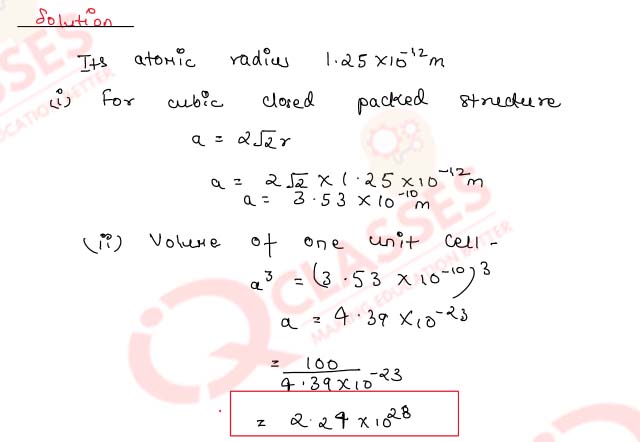 Solution
Its atomic radius 1.25 × 10⁻¹² m
(i) For cubic closed packed structure
a = 2√2 r
a = 2√2 × 1.25 × 10⁻¹² m
a = 3.53 × 10⁻¹⁰ m
(ii) Volume of one unit cell -
a³ = (3.53 × 10⁻¹⁰)³
a = 4.39 × 10⁻²³
= 100 / 4.39 × 10⁻²³
= 2.24 × 10²⁸
CLASSES
MAKING EDUCATION BETTER